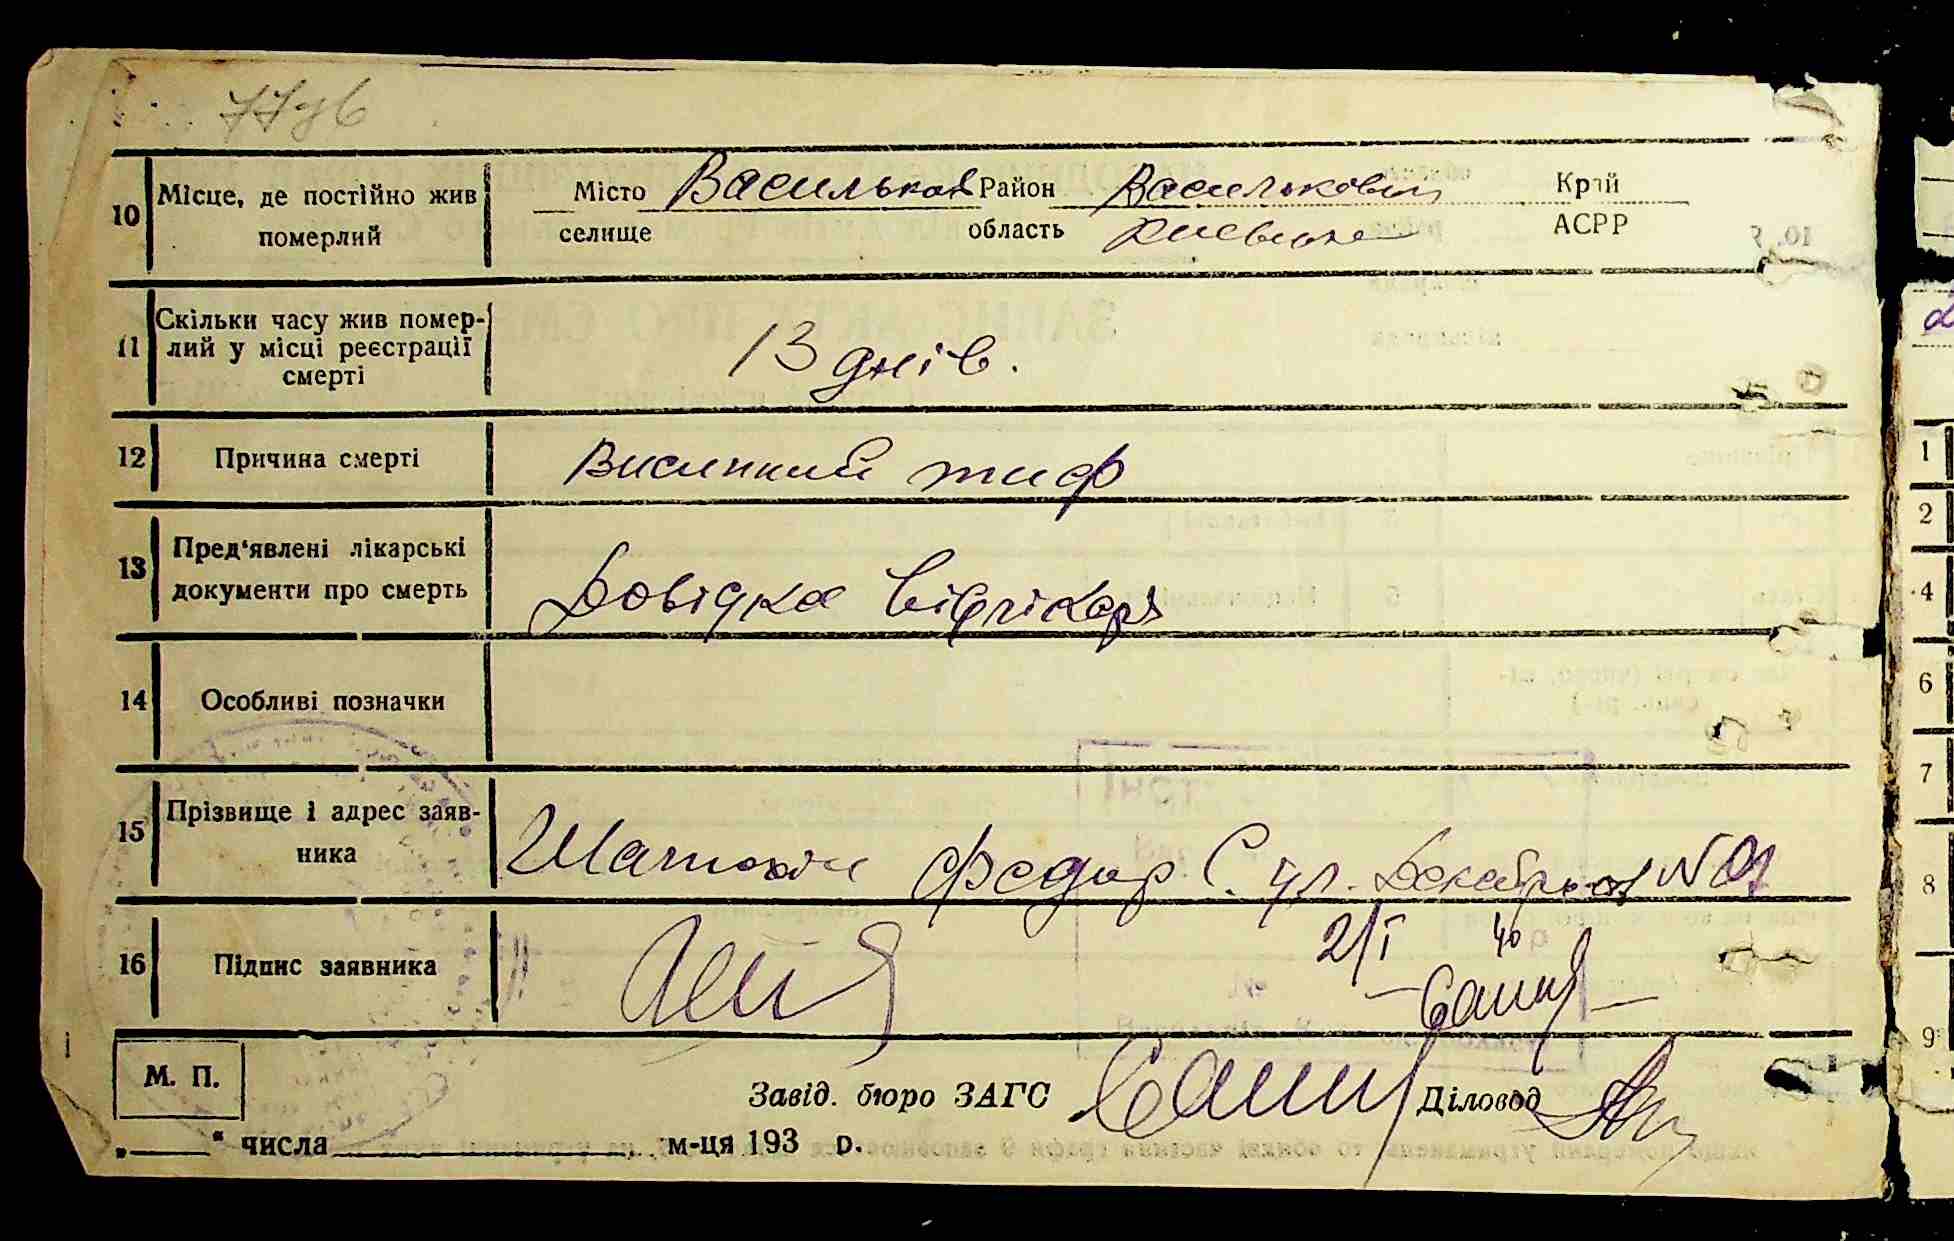 10 Місце, де постійно жив померлий
Місто Васильков Район Васильковск Край
селище область Киевска АСРР
11 Скільки часу жив помер-
лий у місці реєстрації
смерті
13 днів.
12 Причина смерті
Висипний тиф
13 Пред'явлені лікарські
документи про смерть
Довідка від лікаря
14 Особливі позначки
15 Прізвище і адрес заяв-
ника
Федор С. ул. Декабристов №
16 Підпис заявника
2/I 40
М. П.
Завід. бюро ЗАГС Діловод
„ " числа м-ця 193 р.
1
2
4
6
7
8
9